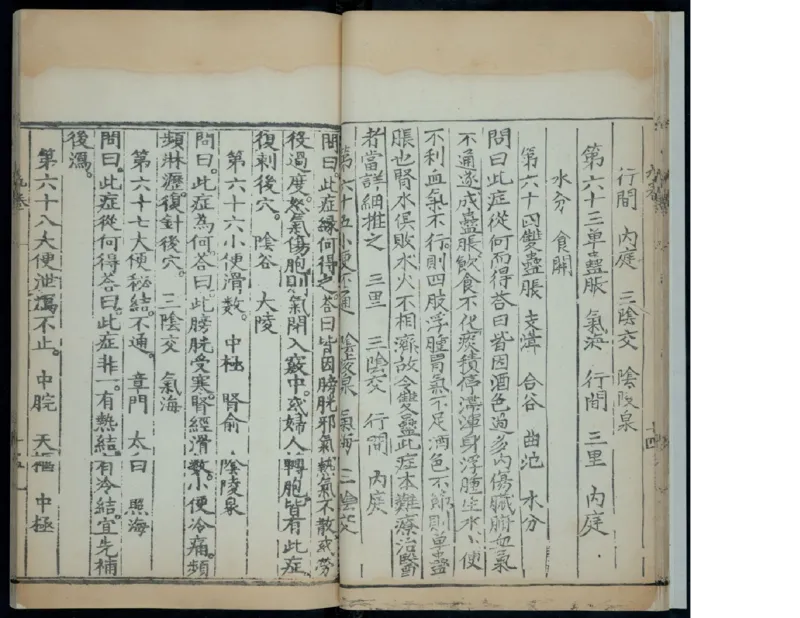 行間 內庭 三陰交 陰陵泉
第六十三单蠱脹 氣海 行間 三里 內庭
水分 食關
第六十四雙蠱脹 支溝 合谷 曲池 水分
問曰此症從何而得荅曰皆因酒色過多內傷臟腑血氣
不通遂成蠱脹飲食不化痰積停滯渾身浮腫生水小便
不利血氣不行則四肢浮腫胃氣不足酒色不節則单蠱
脹也腎水俱敗水火不相濟故令雙蠱此症本難療治醫
者當詳細推之 三里 三陰交 行間 內庭
第六十五小便不通 陰陵泉 氣海 三陰交
問曰。此症緣何得之。荅曰皆因膀胱邪氣熱氣不散或劳
役過度。怒氣傷胞則氣閉入竅中。或婦人轉胞皆有此症
復刺後穴。陰谷 大陵
第六十六小便滑數。 中極 腎俞 陰陵泉
問曰。此症為何。荅曰。此膀胱受寒。腎經滑數。小便冷痛。頻
頻淋瀝。復針後穴。 三陰交 氣海
第六十七大便秘結。不通。 章門 太白 照海
問曰。此症從何得。荅曰。此症非一。有熱結。有冷結。宜先補
後瀉。
第六十八大便泄瀉不止。 中脘 天樞 中極